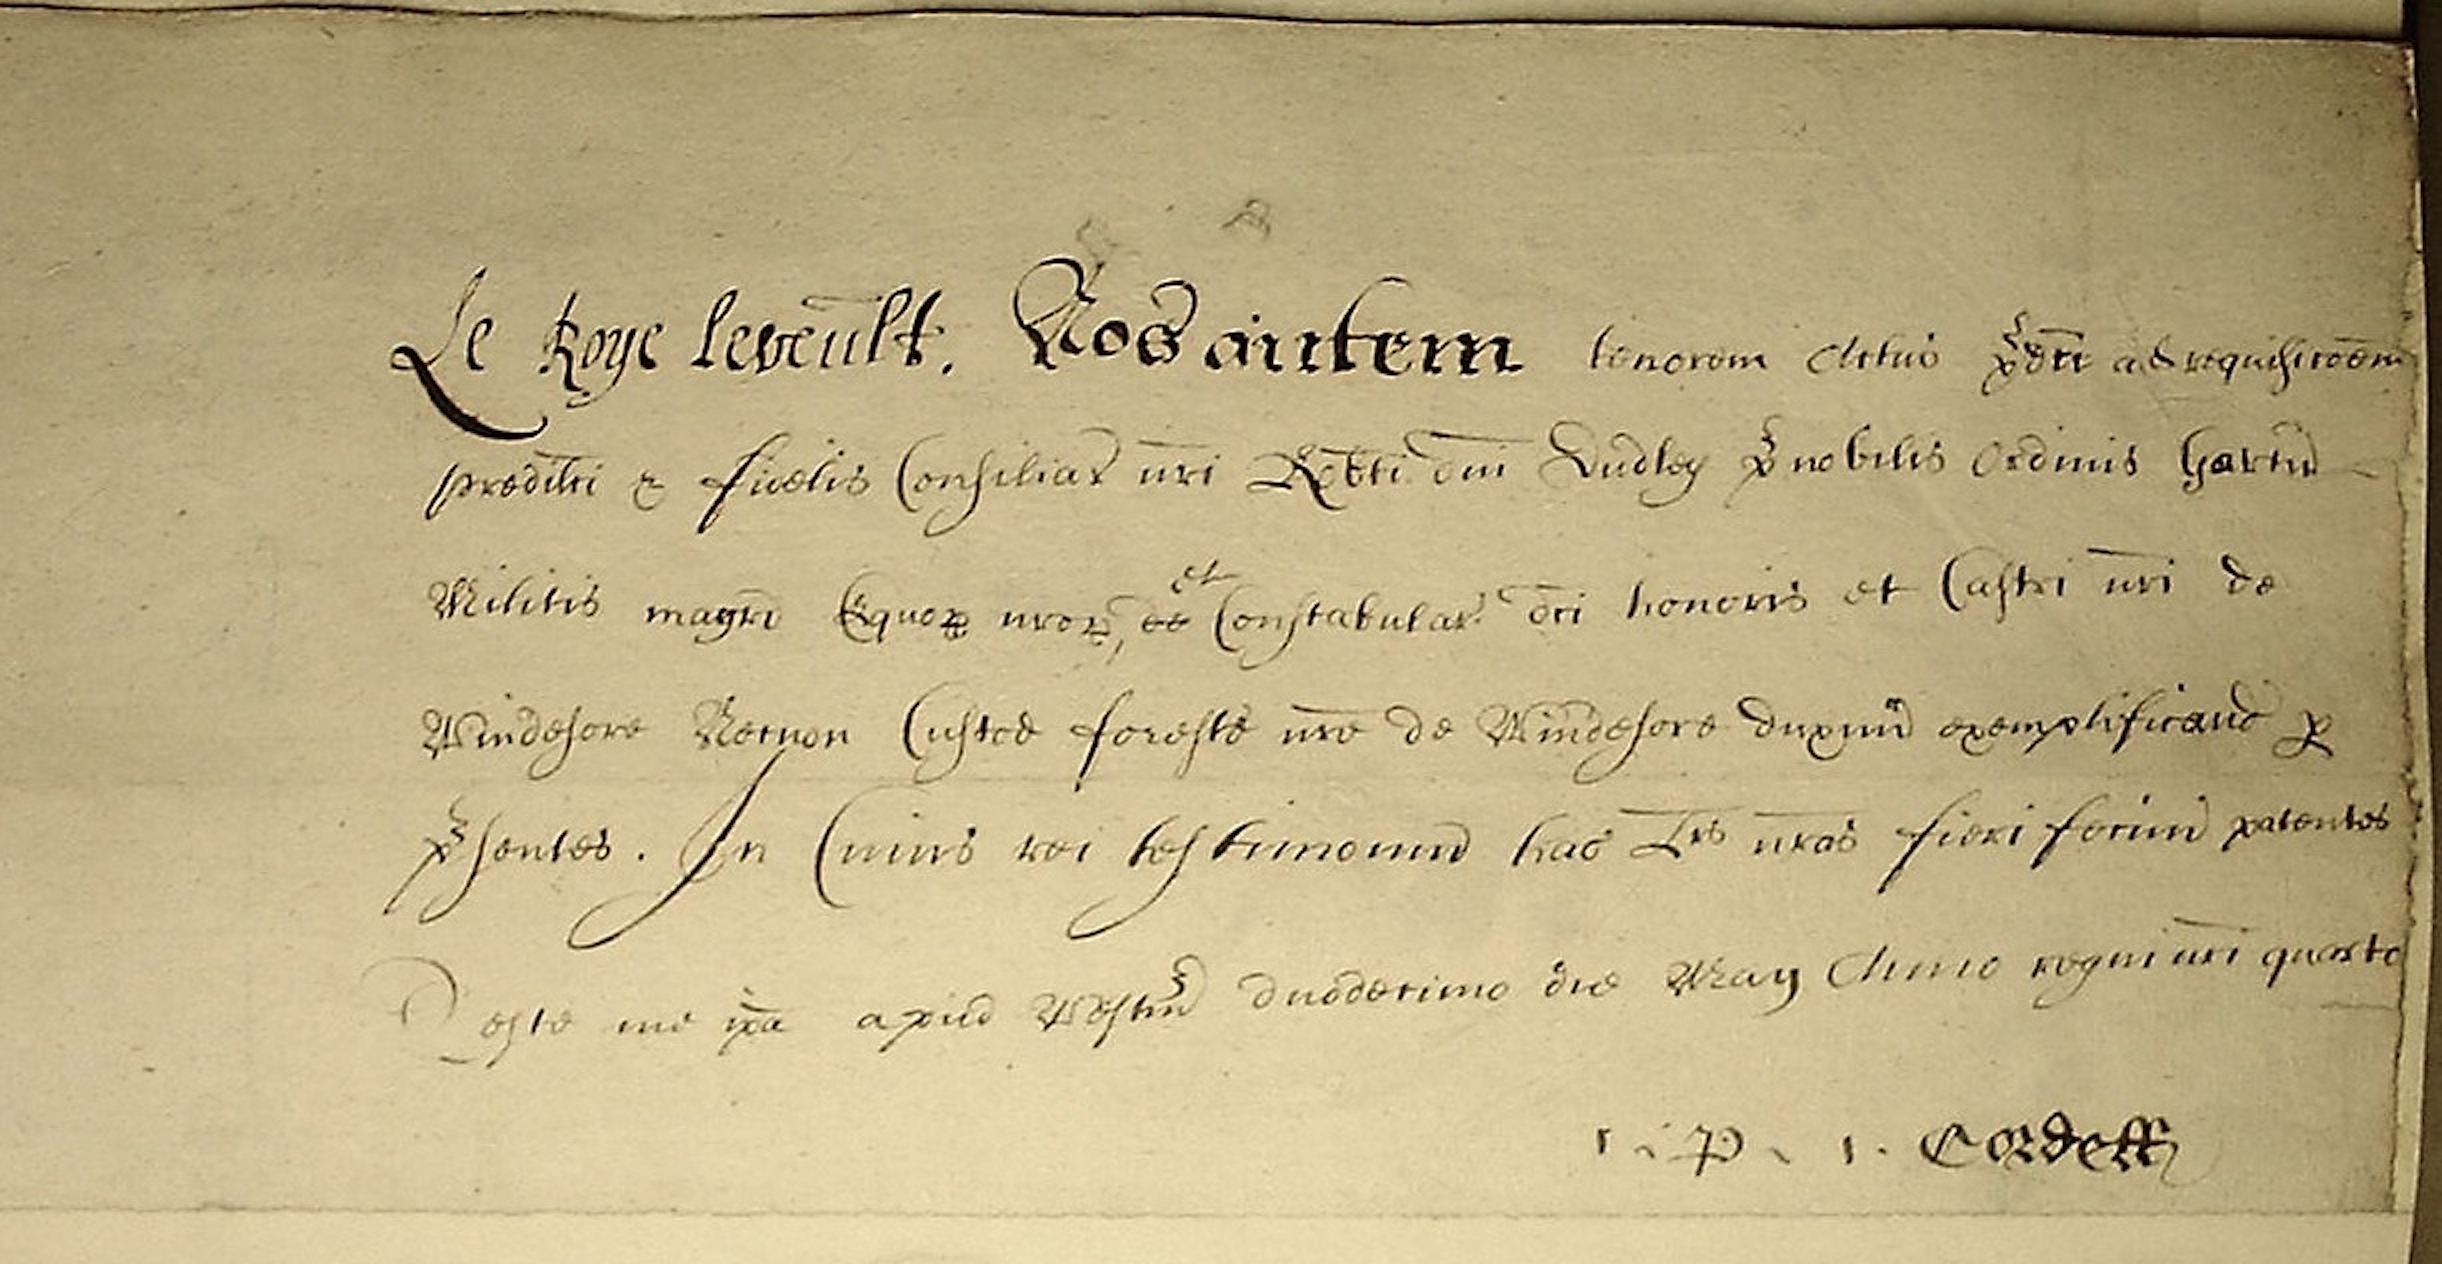 Le Roye leveult. Nos autem tenorem Actus p̃dcī ad requisicōem
predilcī & fidelis Consiliar nr̄i Rob̄ti Dn̄i Dudley p̃nobilis Ordinis Gartꝛ̄
Militis magr̄i Equoꝝ nr̄oꝝ, et Constabular honoris et Castri nr̄i de
Windesore Necnon Custod foreste nr̄e de Windesore duximꝰ exemplificand ꝑ
p̃sentes. In Cuius rei testimoniū has Lr̄as nr̄as fieri fecimꝰ patentes
Teste me ip̄a apud Westm̄ duodecimo die May Anno regni nr̄i quarto
Cordell